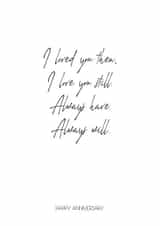 I loved you then,
I love you still.
Always have.
Always will.
HAPPY ANNIVERSARY